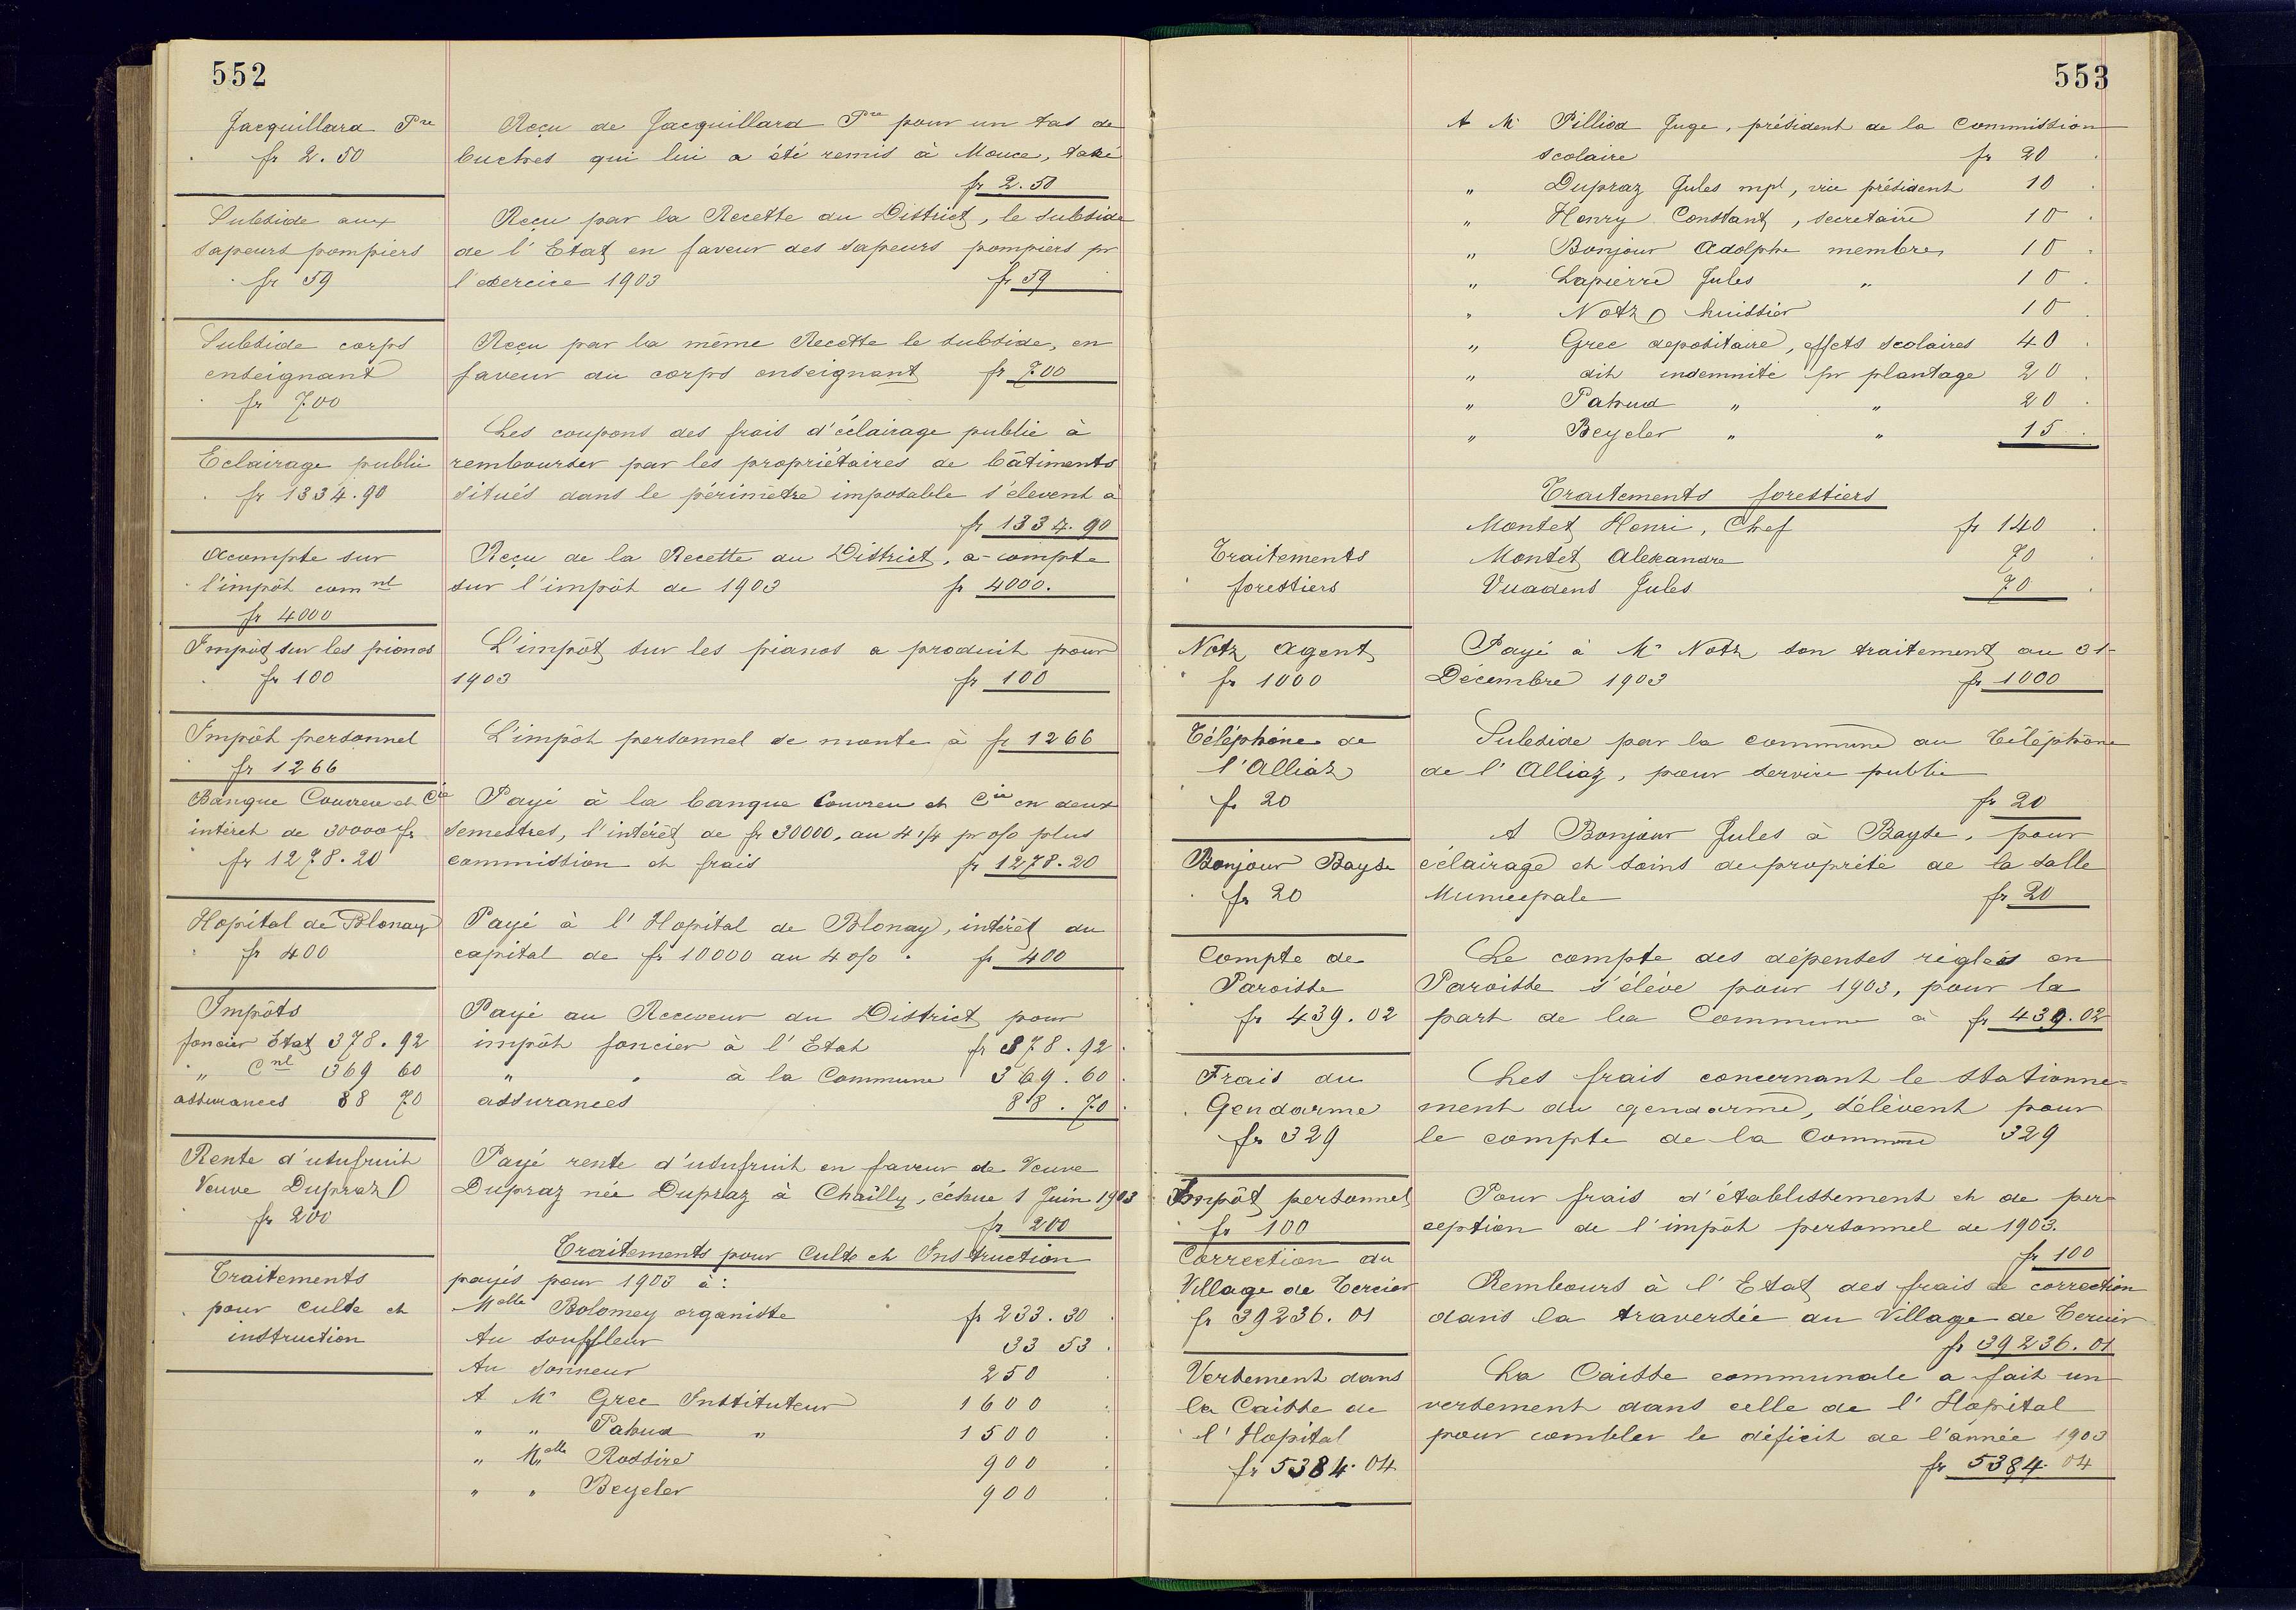 552
Jacquillard Pre
fr 2.50
Reçu de Jacquillard Pre pour un tas de
buches qui lui a été remis à Mouce, taxé
fr 2.50
Subside aux
sapeurs pompiers
fr 59
Reçu par la Recette du District, le subside
de l'Etat en faveur des sapeurs pompiers pr
l'exercice 1903 fr 59
Subside corps
enseignant
fr 700
Reçu par la même Recette le subside, en
faveur du corps enseignant fr 700
Eclairage public
fr 1334.90
Les coupons des frais d'éclairage public à
rembourser par les propriétaires de bâtiments
situés dans le périmètre imposable s'élevent à
fr 1334.90
Acompte sur
l'impôt comnl
fr 4000
Reçu de la Recette du District, a-compte
sur l'impôt de 1903 fr 4000.
Impôt sur les pianos
fr 100
L'impôt sur les pianos a produit pour
1903 fr 100
Impôt personnel
fr 1266
L'impôt personnel se monte à fr 1266
Banque Couvreu et Cie
intérêt de 30000 fr
fr 1278.20
Payé à la banque Couvreu et Cie en deux
semestres, l'intérêt de fr 30000, au 4 1/4 pr o/o plus
commission et frais fr 1278.20
Hopital de Blonay
fr 400
Payé à l'Hopital de Blonay, intérêt du
capital de fr 10000 au 4 o/o fr 400
Impôts
foncier Etat 378.92
" Cnl 369 60
assurances 88 70
Payé au Receveur du District pour
impôt foncier à l'Etat fr 378.92
" " à la Commune 369.60
assurances 88.70
Rente d'usufruit
Veuve Dupraz
fr 200
Payé rente d'usufruit en faveur de Veuve
Dupraz née Dupraz à Chailly, échue 1 Juin 1903
fr 200
Traitements
pour culte et
instruction
Traitements pour Culte et Instruction
payés pour 1903 à:
Melle Bolomey organiste fr 233.30
Au souffleur 33 53
Au sonneur 250
A Mr Grec Instituteur 1600
" " Pahud " 1500
" Melle Rossire 900
" " Beyeler 900
553
A Mr Pilliod Juge, président de la Commission
scolaire fr 20
" Dupraz Jules mpl, vice président 10
" Henry Constant, secretaire 10
" Bonjour Adolphe membre 10
" Lapierre Jules " 10
" Notz huissier 10
" Grec depositaire, effets scolaires 40
" dit indemnité pr plantage 20
" Pahud " " 20
" Beyeler " " 15
Traitements
forestiers
Traitements forestiers
Montet Henri, Chef fr 140
Montet Alexandre 70
Vuadens Jules 70
Notz agent
fr 1000
Payé à Mr Notz son traitement au 31
Décembre 1903 fr 1000
Téléphone de
l'Alliaz
fr 20
Subside par la commune au Téléphone
de l'Alliaz, pour service public
fr 20
Bonjour Bayse
fr 20
A Bonjour Jules à Bayse, pour
éclairage et soins de propreté de la salle
Municipale fr 20
Compte de
Paroisse
fr 439.02
Le compte des dépenses réglées en
Paroisse s'élève pour 1903, pour la
part de la Commune à fr 439.02
Frais du
Gendarme
fr 329
Les frais concernant le stationne-
ment du gendarme, s'élèvent pour
le compte de la Commune 329
Impôt personnel
fr 100
Pour frais d'établissement et de per-
ception de l'impôt personnel de 1903.
fr 100
Correction du
Village de Tercier
fr 39236.01
Rembours à l'Etat des frais de correction
dans la traversée du Village de Tercier
fr 39236.01
Versement dans
la Caisse de
l'Hopital
fr 5384.04
La Caisse communale a fait un
versement dans celle de l'Hopital
pour combler le déficit de l'année 1903
fr 5384.04